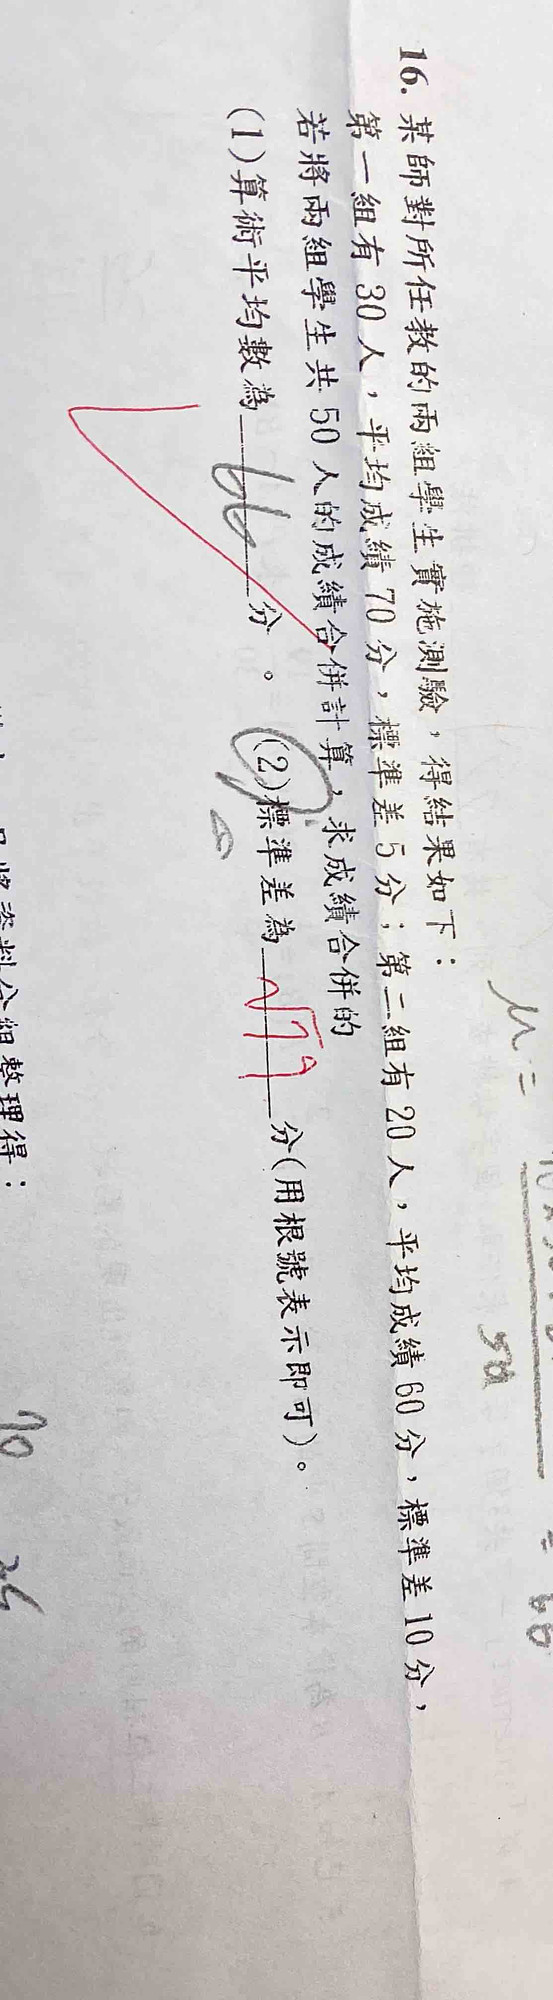 16. 某師對所任教的兩組學生實施測驗，得結果如下：
第一組有30人，平均成績70分，標準差5分；第二組有20人，平均成績60分，標準差10分，
若將兩組學生共50人的成績合併計算，求成績合併的
(1)算術平均數為66分。(2)標準差為√79分(用根號表示即可)。
μ=
50
=66
組整理得：
70